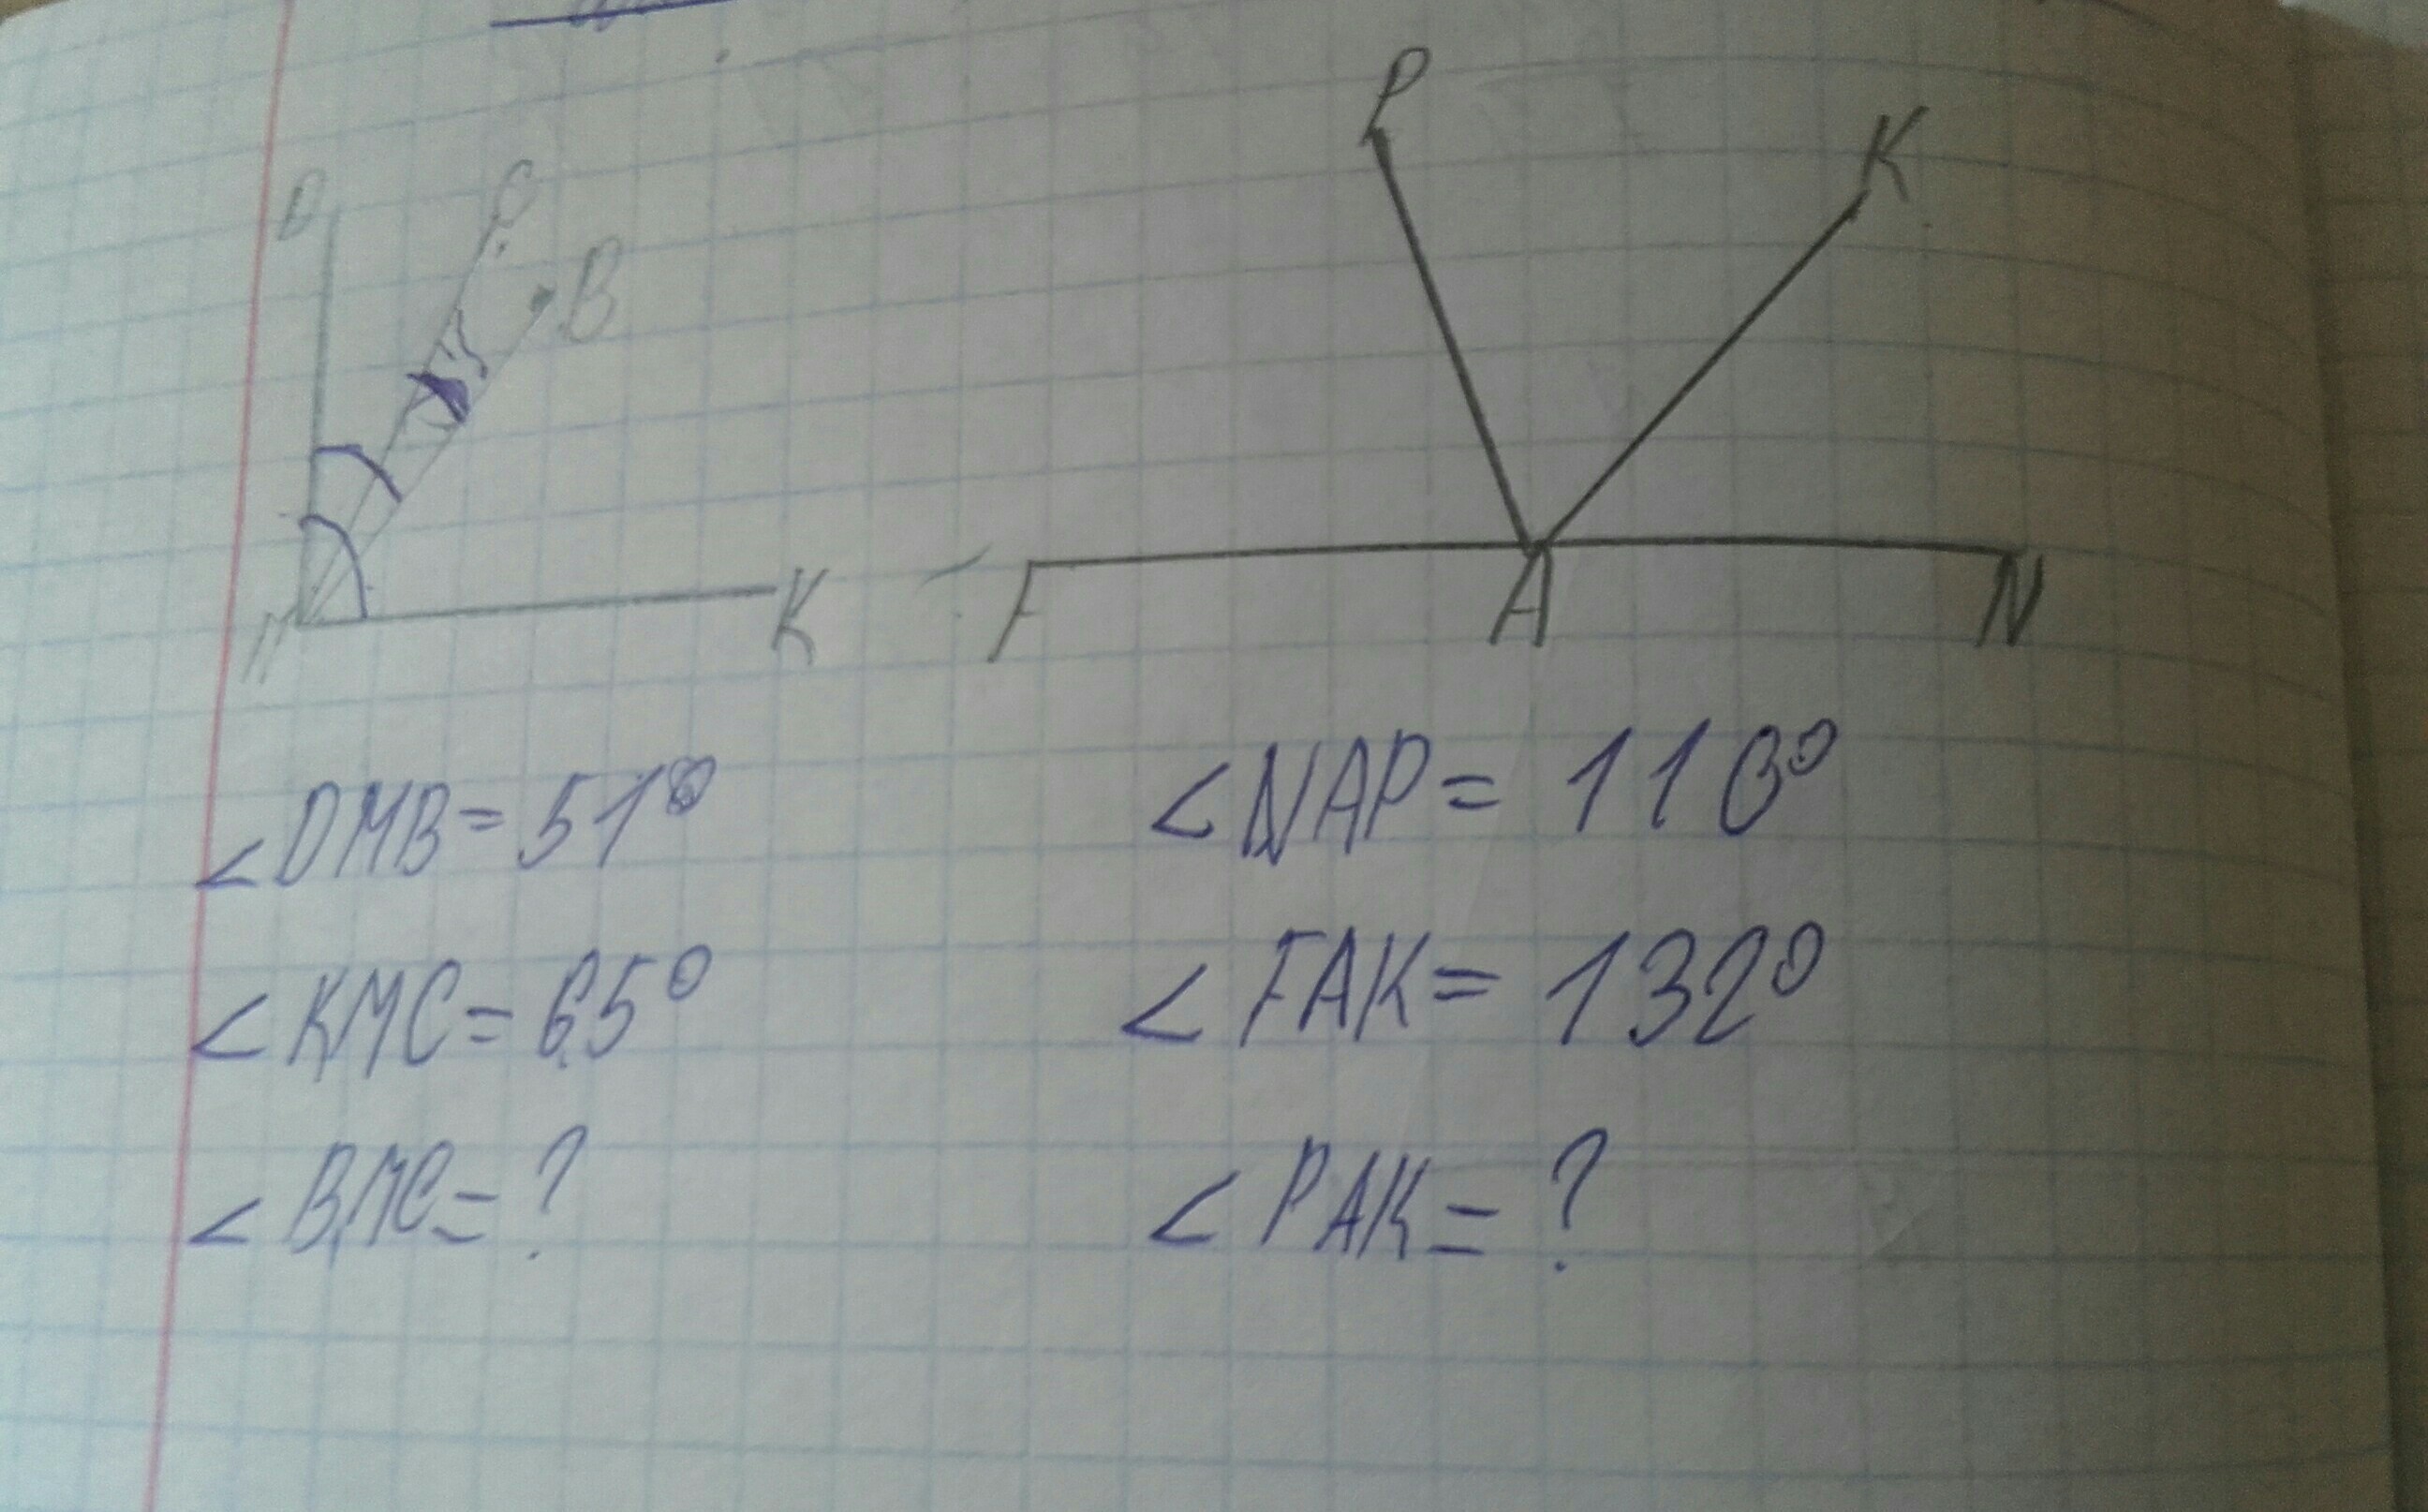 P
K
D
C
B
M
K
F
A
N
∠DMB = 51°
∠KMC = 65°
∠BMC = ?
∠NAP = 110°
∠FAK = 132°
∠PAK = ?